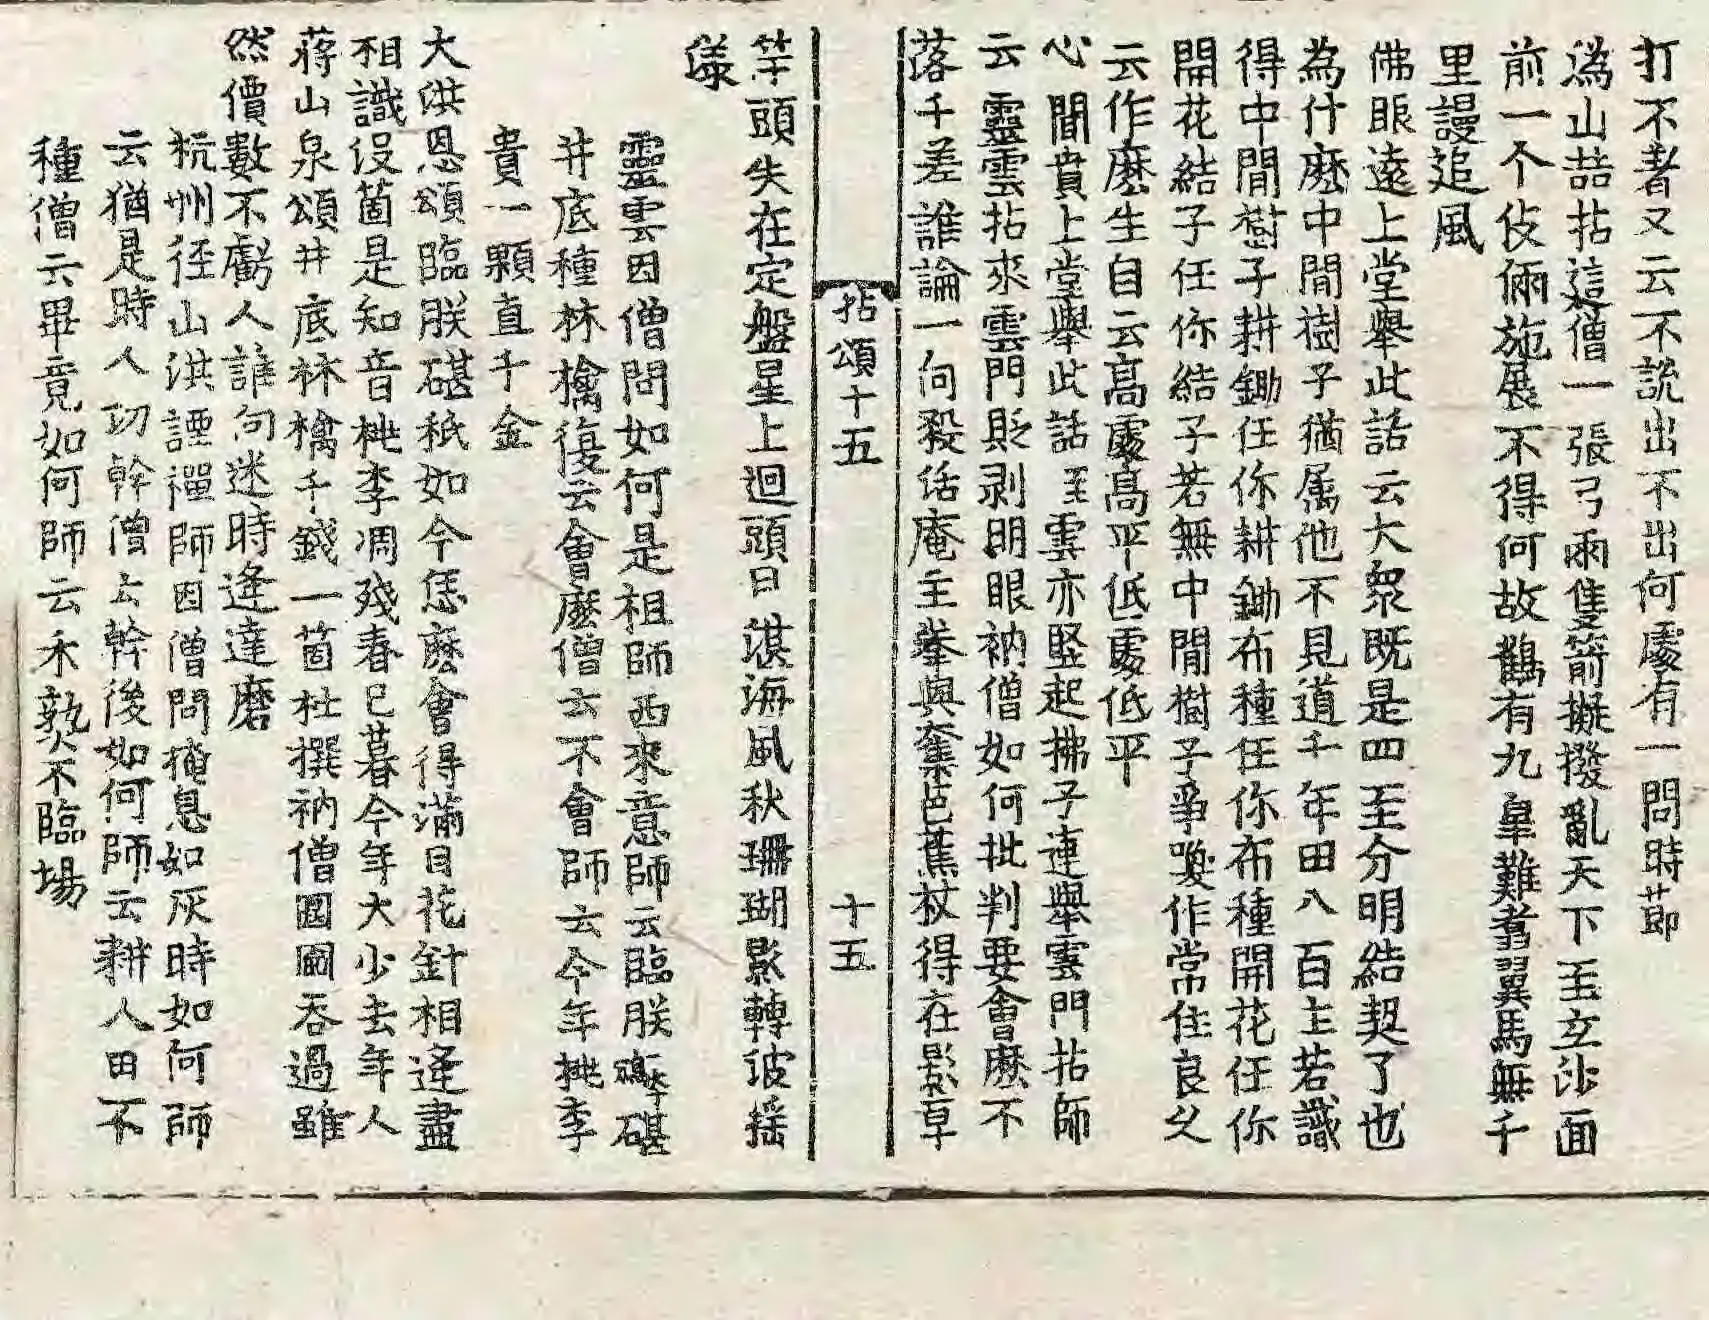 打不著又云不說出不出何處有一問時莭
潙山喆拈這僧一張弓兩隻箭擬撥亂天下至立沙面
前一个伎倆施展不得何故鶴有九皐難翥翼馬無千
里謾追風
佛眼遠上堂舉此話云大衆既是四至分明結契了也
為什麽中間樹子猶属他不見道千年田八百主若識
得中間樹子耕鋤任你耕鋤布種任你布種開花任你
開花結子任你結子若無中間樹子爭喚作常住良久
云作麽生自云髙處髙平低處低平
心聞賁上堂舉此話至雲亦竪起拂子連舉雲門拈師
云靈雲拈來雲門貶剥明眼衲僧如何批判要會麽不
落千差誰論一向殺活庵主拳與奪芭蕉杖得在影草
拈頌十五 十五
竿頭失在定盤星上迴頭日湛海風秋珊瑚影轉波摇
漾
靈雲因僧問如何是祖師西來意師云臨朕碢碪
井底種林檎復云會麽僧云不會師云今年桃李
貴一顆直千金
大洪恩頌臨朕碪秖如今恁麽會得滿目花針相逢盡
相識没箇是知音桃李凋殘春已暮今年大少去年人
蔣山泉頌井底林檎千錢一箇杜撰衲僧圂圇吞過雖
然價數不虧人誰向迷時逢達磨
杭州徑山洪諲禪師因僧問掩息如灰時如何師
云猶是時人功幹僧云幹後如何師云耕人田不
種僧云畢竟如何師云禾熟不臨場